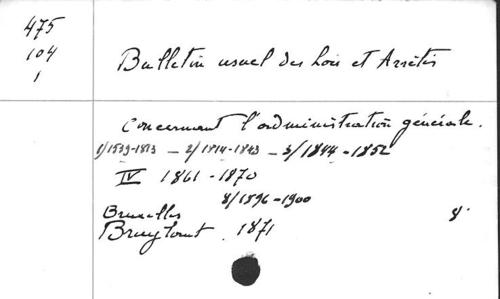 475
104
1
Bulletin usuel des Lois et Arrêtés
Concernant l'administration générale.
1/1539-1813 — 2/1814-1843 — 3/1844-1852
IV 1861-1870
8/1896-1900
Bruxelles 8°
Bruylant. 1871